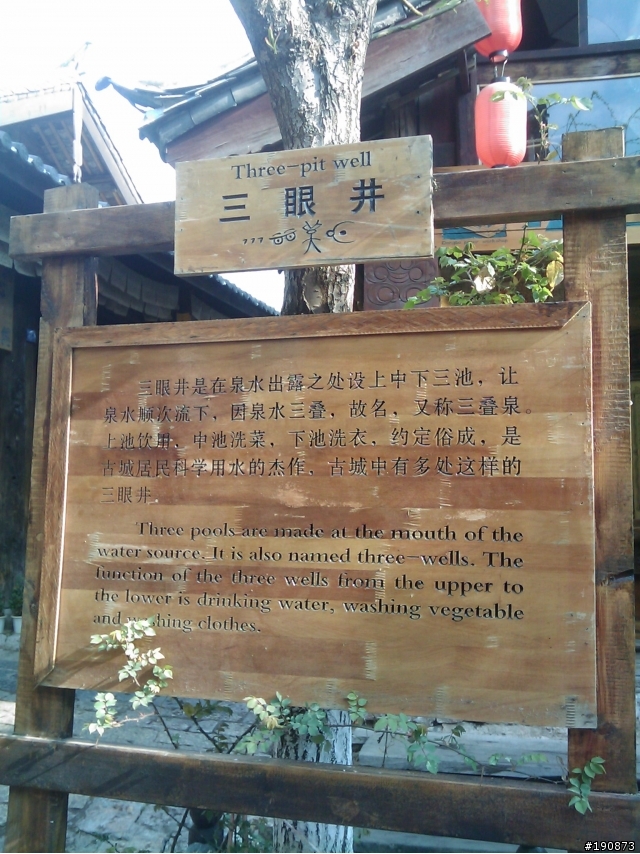 Three-pit well
三眼井
三眼井是在泉水出露之处设上中下三池，让
泉水顺次流下，因泉水三叠，故名，又称三叠泉。
上池饮用，中池洗菜，下池洗衣，约定俗成，是
古城居民科学用水的杰作，古城中有多处这样的
三眼井。
Three pools are made at the mouth of the
water source. It is also named three-wells. The
function of the three wells from the upper to
the lower is drinking water, washing vegetable
and washing clothes.
#190873